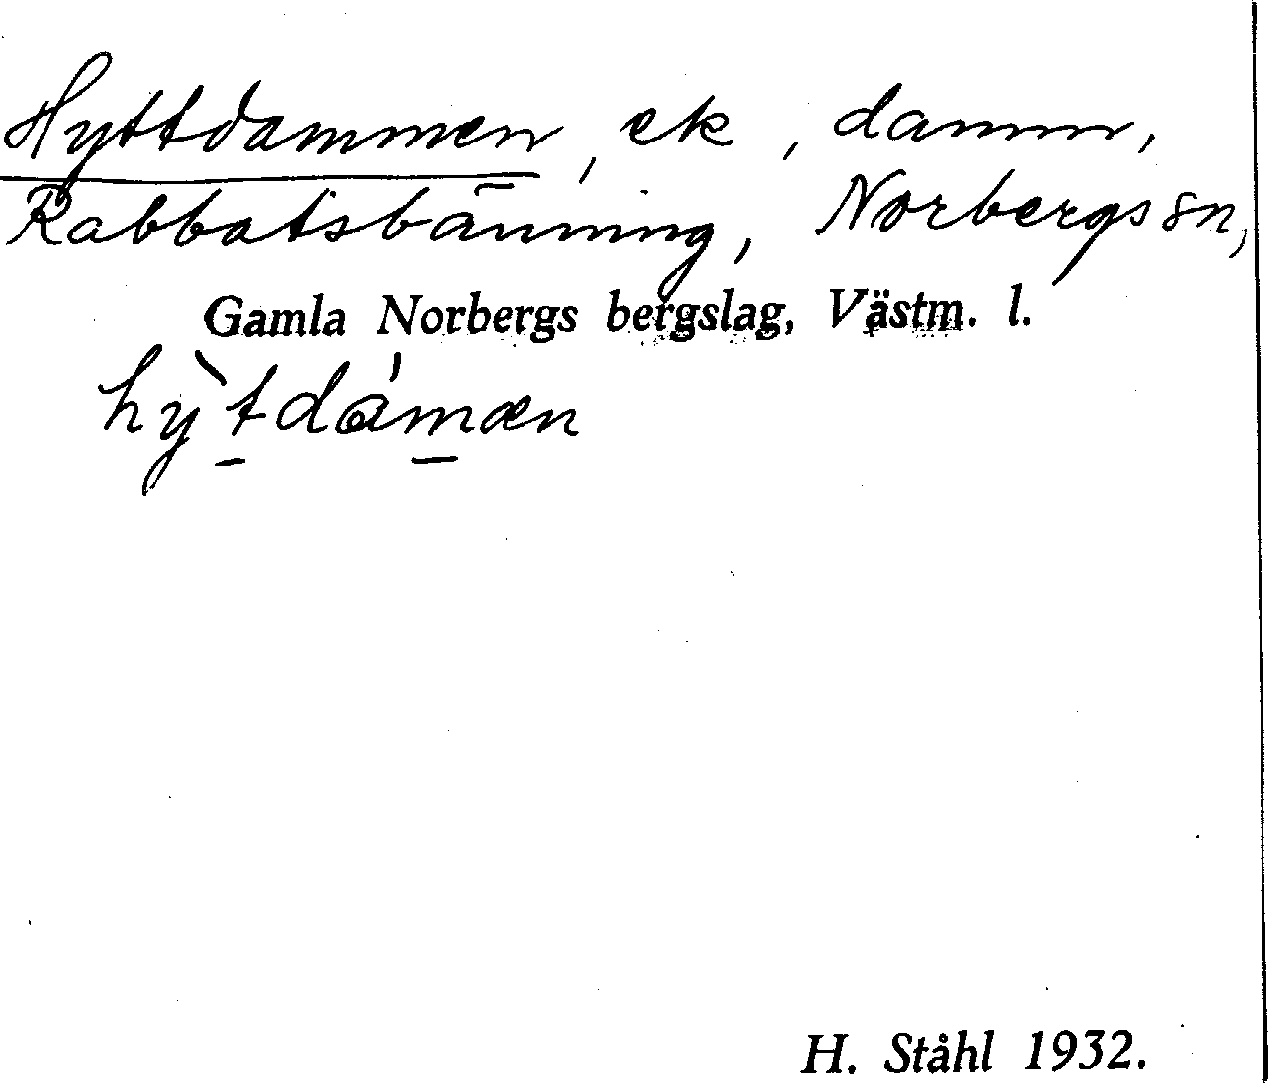 Hyttdammen, ek, damm,
Rabbatsbänning, Norbergs sn,
Gamla Norbergs bergslag, Västm. l.
hỳtdámæn
H. Ståhl 1932.